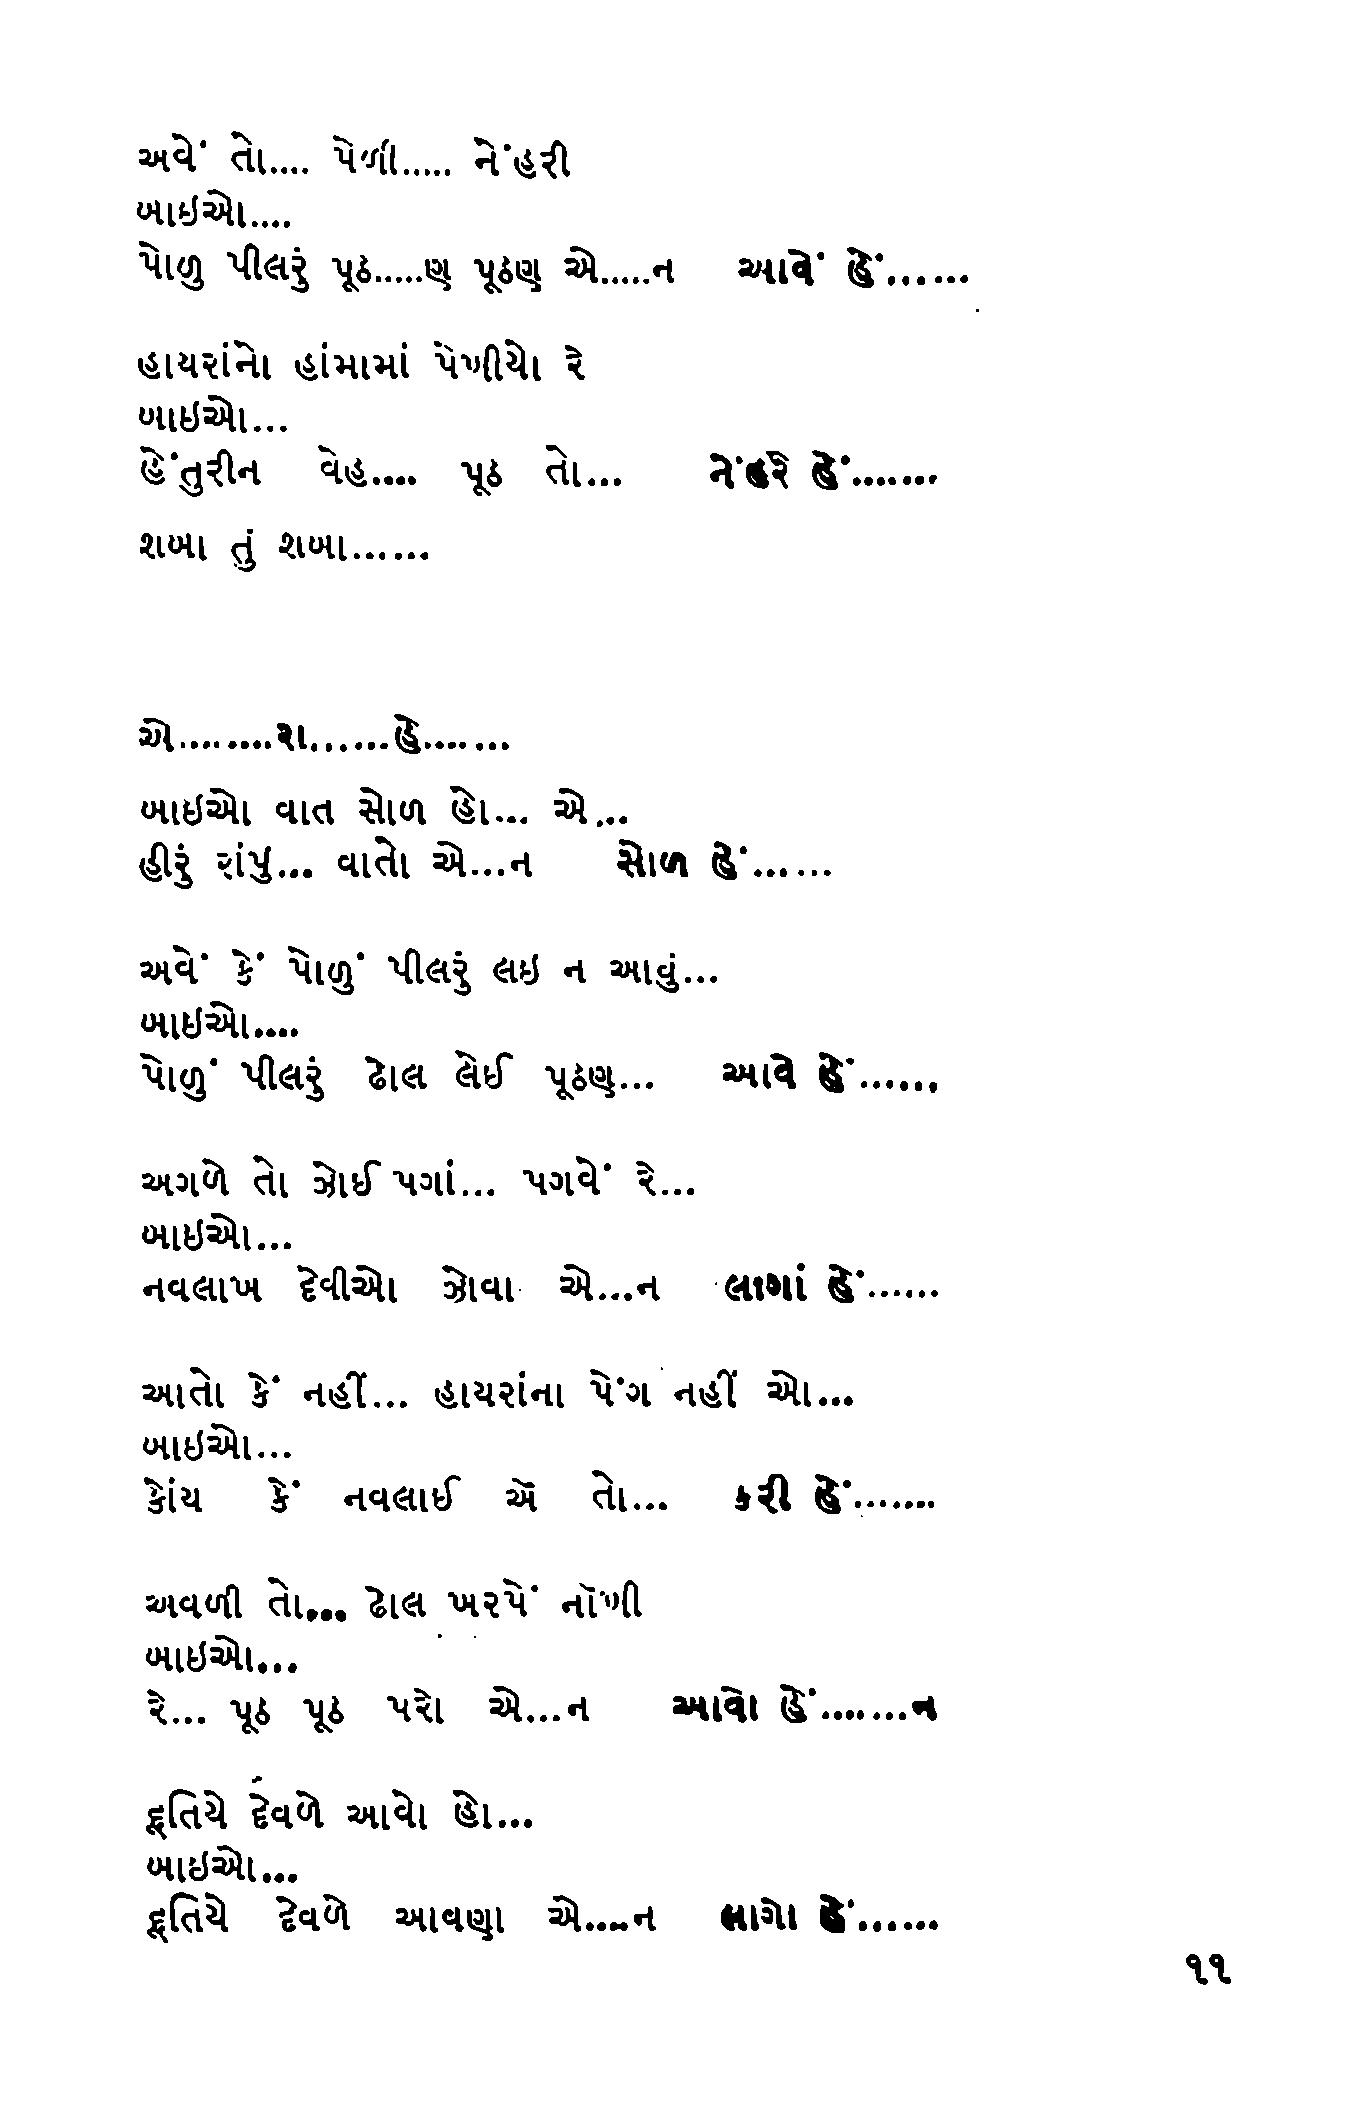 અવેં તો.... પેળી..... નેંહરી
બાઇઓ....
પોળુ પીલરું પૂઠ.....ણ પૂઠણ એ.....ન આવેં હેં......
હાયરાંનો હાંમામાં પેખીયો રે
બાઇઓ...
હેંતુરીન વેહ.... પૂઠ તો... નેંહરે હેં.......
શબા તું શબા......
એ........શ.......હે.......
બાઇઓ વાત સોળ હો... એ...
હીરું રાંપુ... વાતો એ...ન સોળ હેં......
અવેં કેં પોળું પીલરું લઇ ન આવું...
બાઇઓ....
પોળું પીલરું ઢોલ લેઈ પૂઠણ... આવે હેં......
અગળે તો ઝોઈ પગાં... પગવેં રે...
બાઇઓ...
નવલાખ દેવીઓ ઝોવા એ...ન લાગાં હેં......
આતો કેં નહીં... હાયરાંના પેંગ નહીં ઓ...
બાઇઓ...
કેાંય કેં નવલાઈ ઍ તો... કરી હેં.......
અવળી તો... ઢોલ ખરપેં નૉંખી
બાઇઓ...
રે... પૂઠ પૂઠ પરો એ...ન આવો હેં.......ન
દ્વતિયે દેવળે આવો હો...
બાઇઓ...
દ્વતિયે દેવળે આવણા એ....ન લાગો હેં......
૧૧